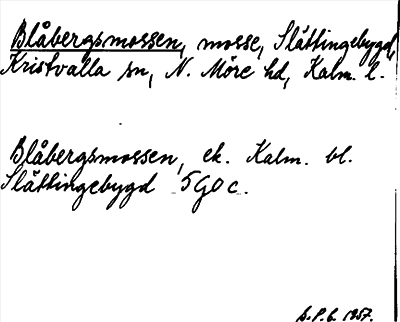 Blåbergsmossen, mosse, Slättingebygd,
Kristvalla sn, N. Möre hd, Kalm. l.
Blåbergsmossen, ek. Kalm. bl.
Slättingebygd 5G0c.
S.P.B. 1957.